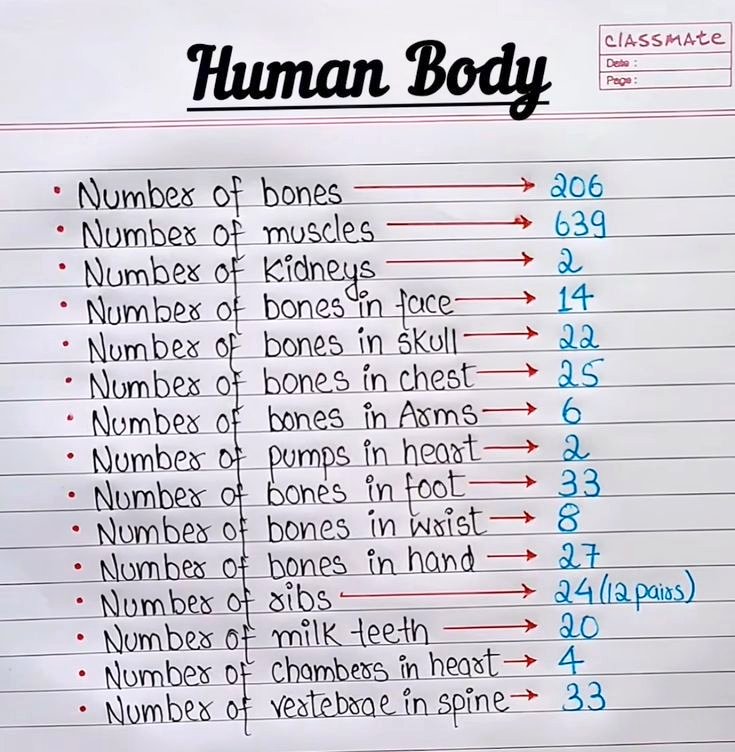 Human Body
classmate
Date :
Page :
• Number of bones → 206
• Number of muscles → 639
• Number of kidneys → 2
• Number of bones in face → 14
• Number of bones in skull → 22
• Number of bones in chest → 25
• Number of bones in Arms → 6
• Number of pumps in heart → 2
• Number of bones in foot → 33
• Number of bones in wrist → 8
• Number of bones in hand → 27
• Number of ribs → 24 (12 pairs)
• Number of milk teeth → 20
• Number of chambers in heart → 4
• Number of vertebrae in spine → 33